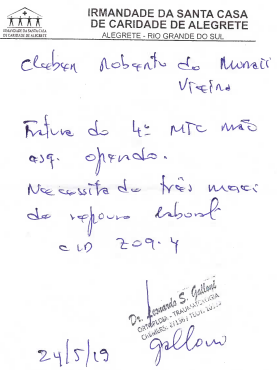 IRMANDADE DA SANTA CASA
DE CARIDADE DE ALEGRETE
IRMANDADE DA SANTA CASA
DE CARIDADE DE ALEGRETE
ALEGRETE - RIO GRANDE DO SUL
Cleber Roberto do
Vieira
Fratura do 4º MTC mão
esq. operado.
Necessita de três meses
de repouso laboral
CID Z09.4
Dr. Leonardo S. Galloni
ORTOPEDIA - TRAUMATOLOGIA
24/5/19